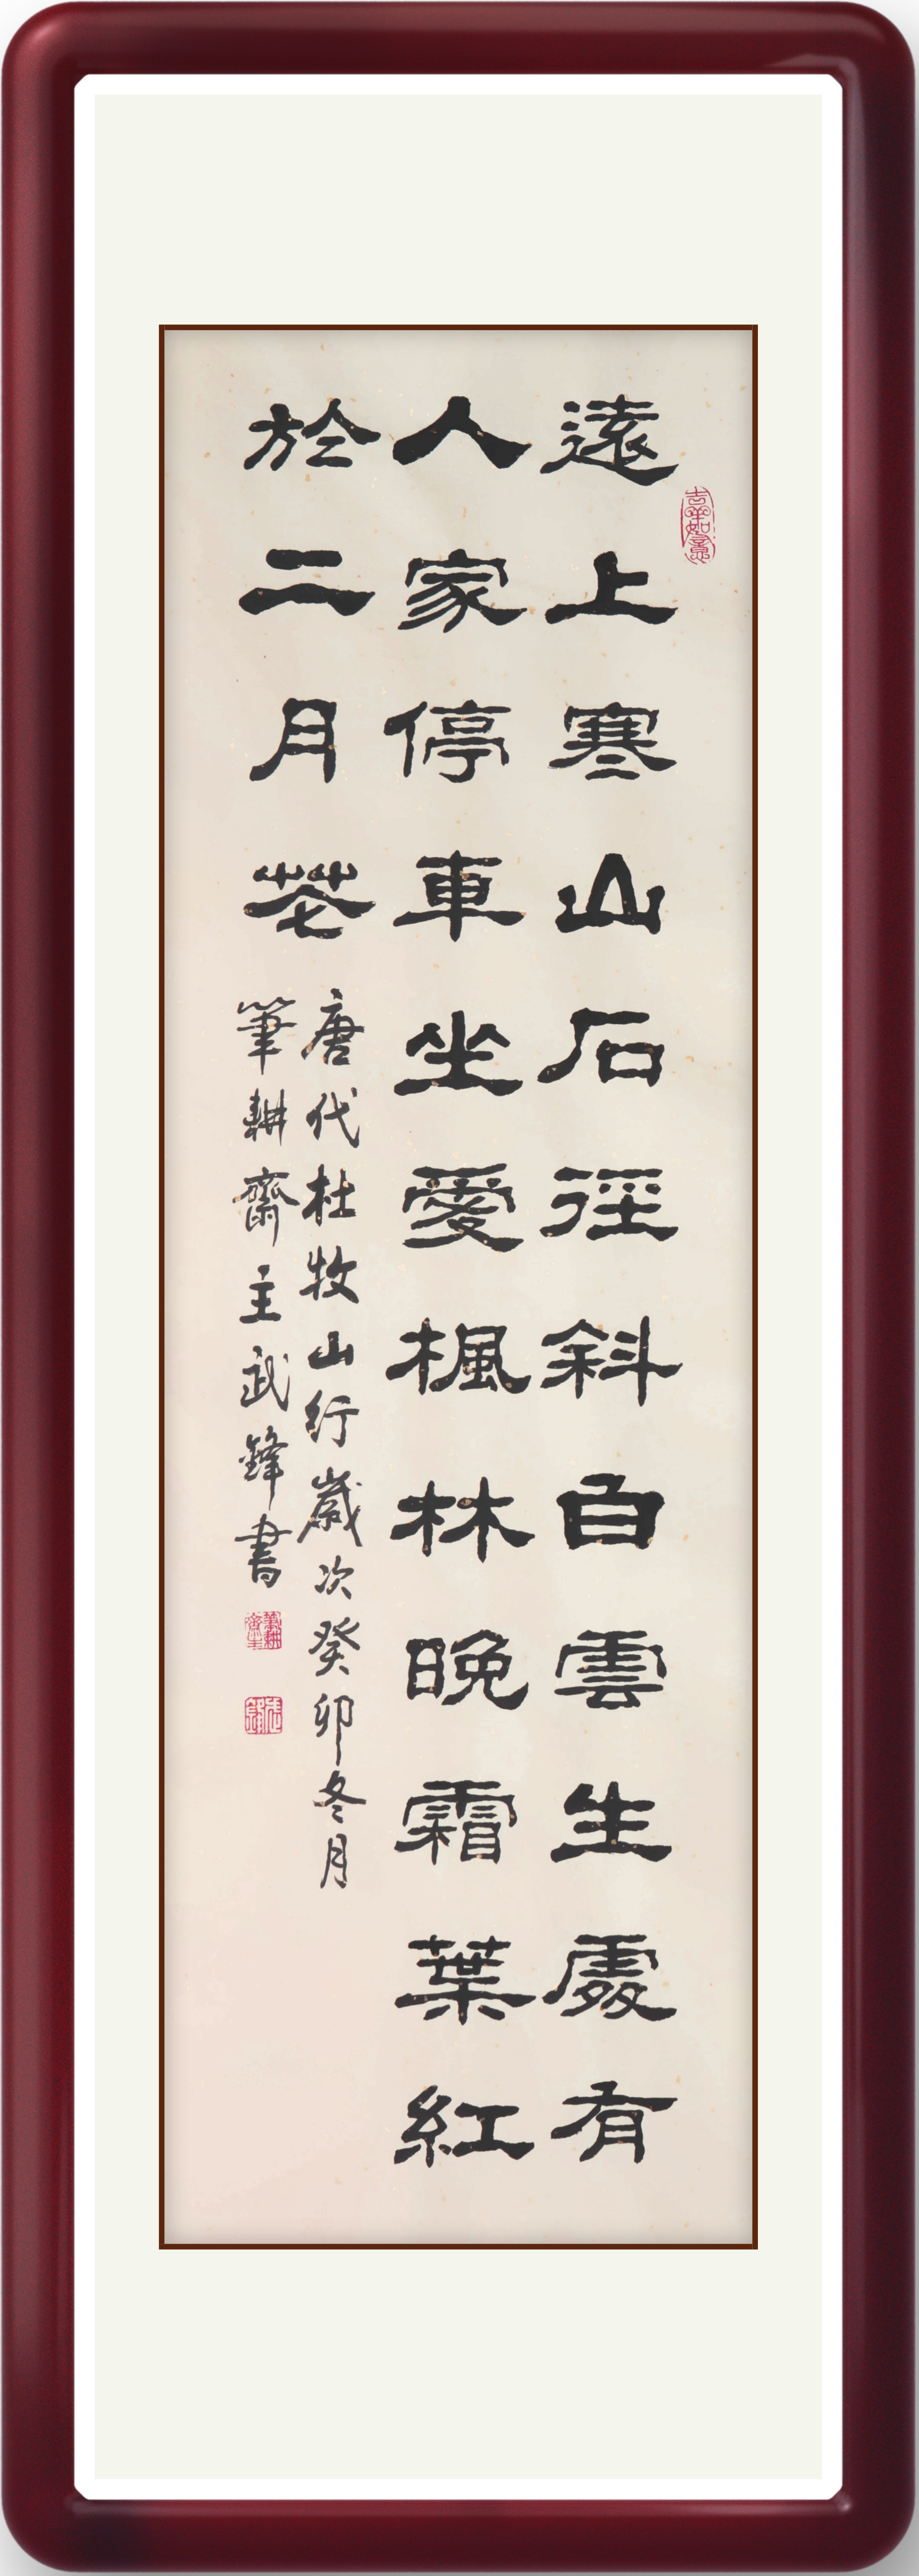 遠上寒山石徑斜白雲生處有
人家停車坐愛楓林晚霜葉紅
於二月花
唐代杜牧山行歲次癸卯冬月
筆耕齋主武鋒書
吉羊如意
筆耕齋主